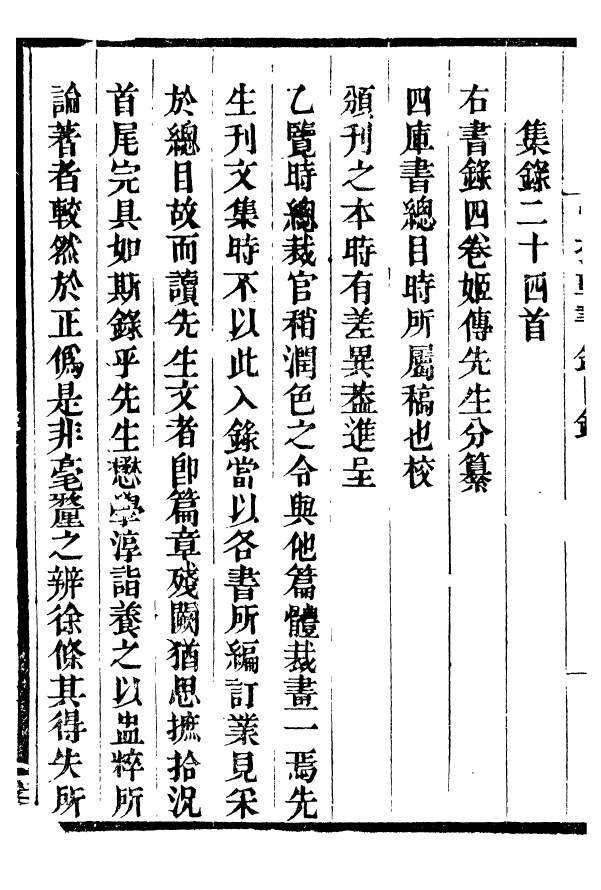 集錄二十四首
右書錄四卷姬傳先生分纂
四庫書總目時所屬稿也校
頒刊之本時有差異蓋進呈
乙覽時總裁官稍潤色之令與他篇體裁畫一焉先
生刊文集時不以此入錄當以各書所編訂業見采
於總目故而讀先生文者卽篇章殘闕猶思摭拾況
首尾完具如斯錄乎先生懋學淳詣養之以盅粹所
論著者較然於正僞是非毫釐之辨徐條其得失所